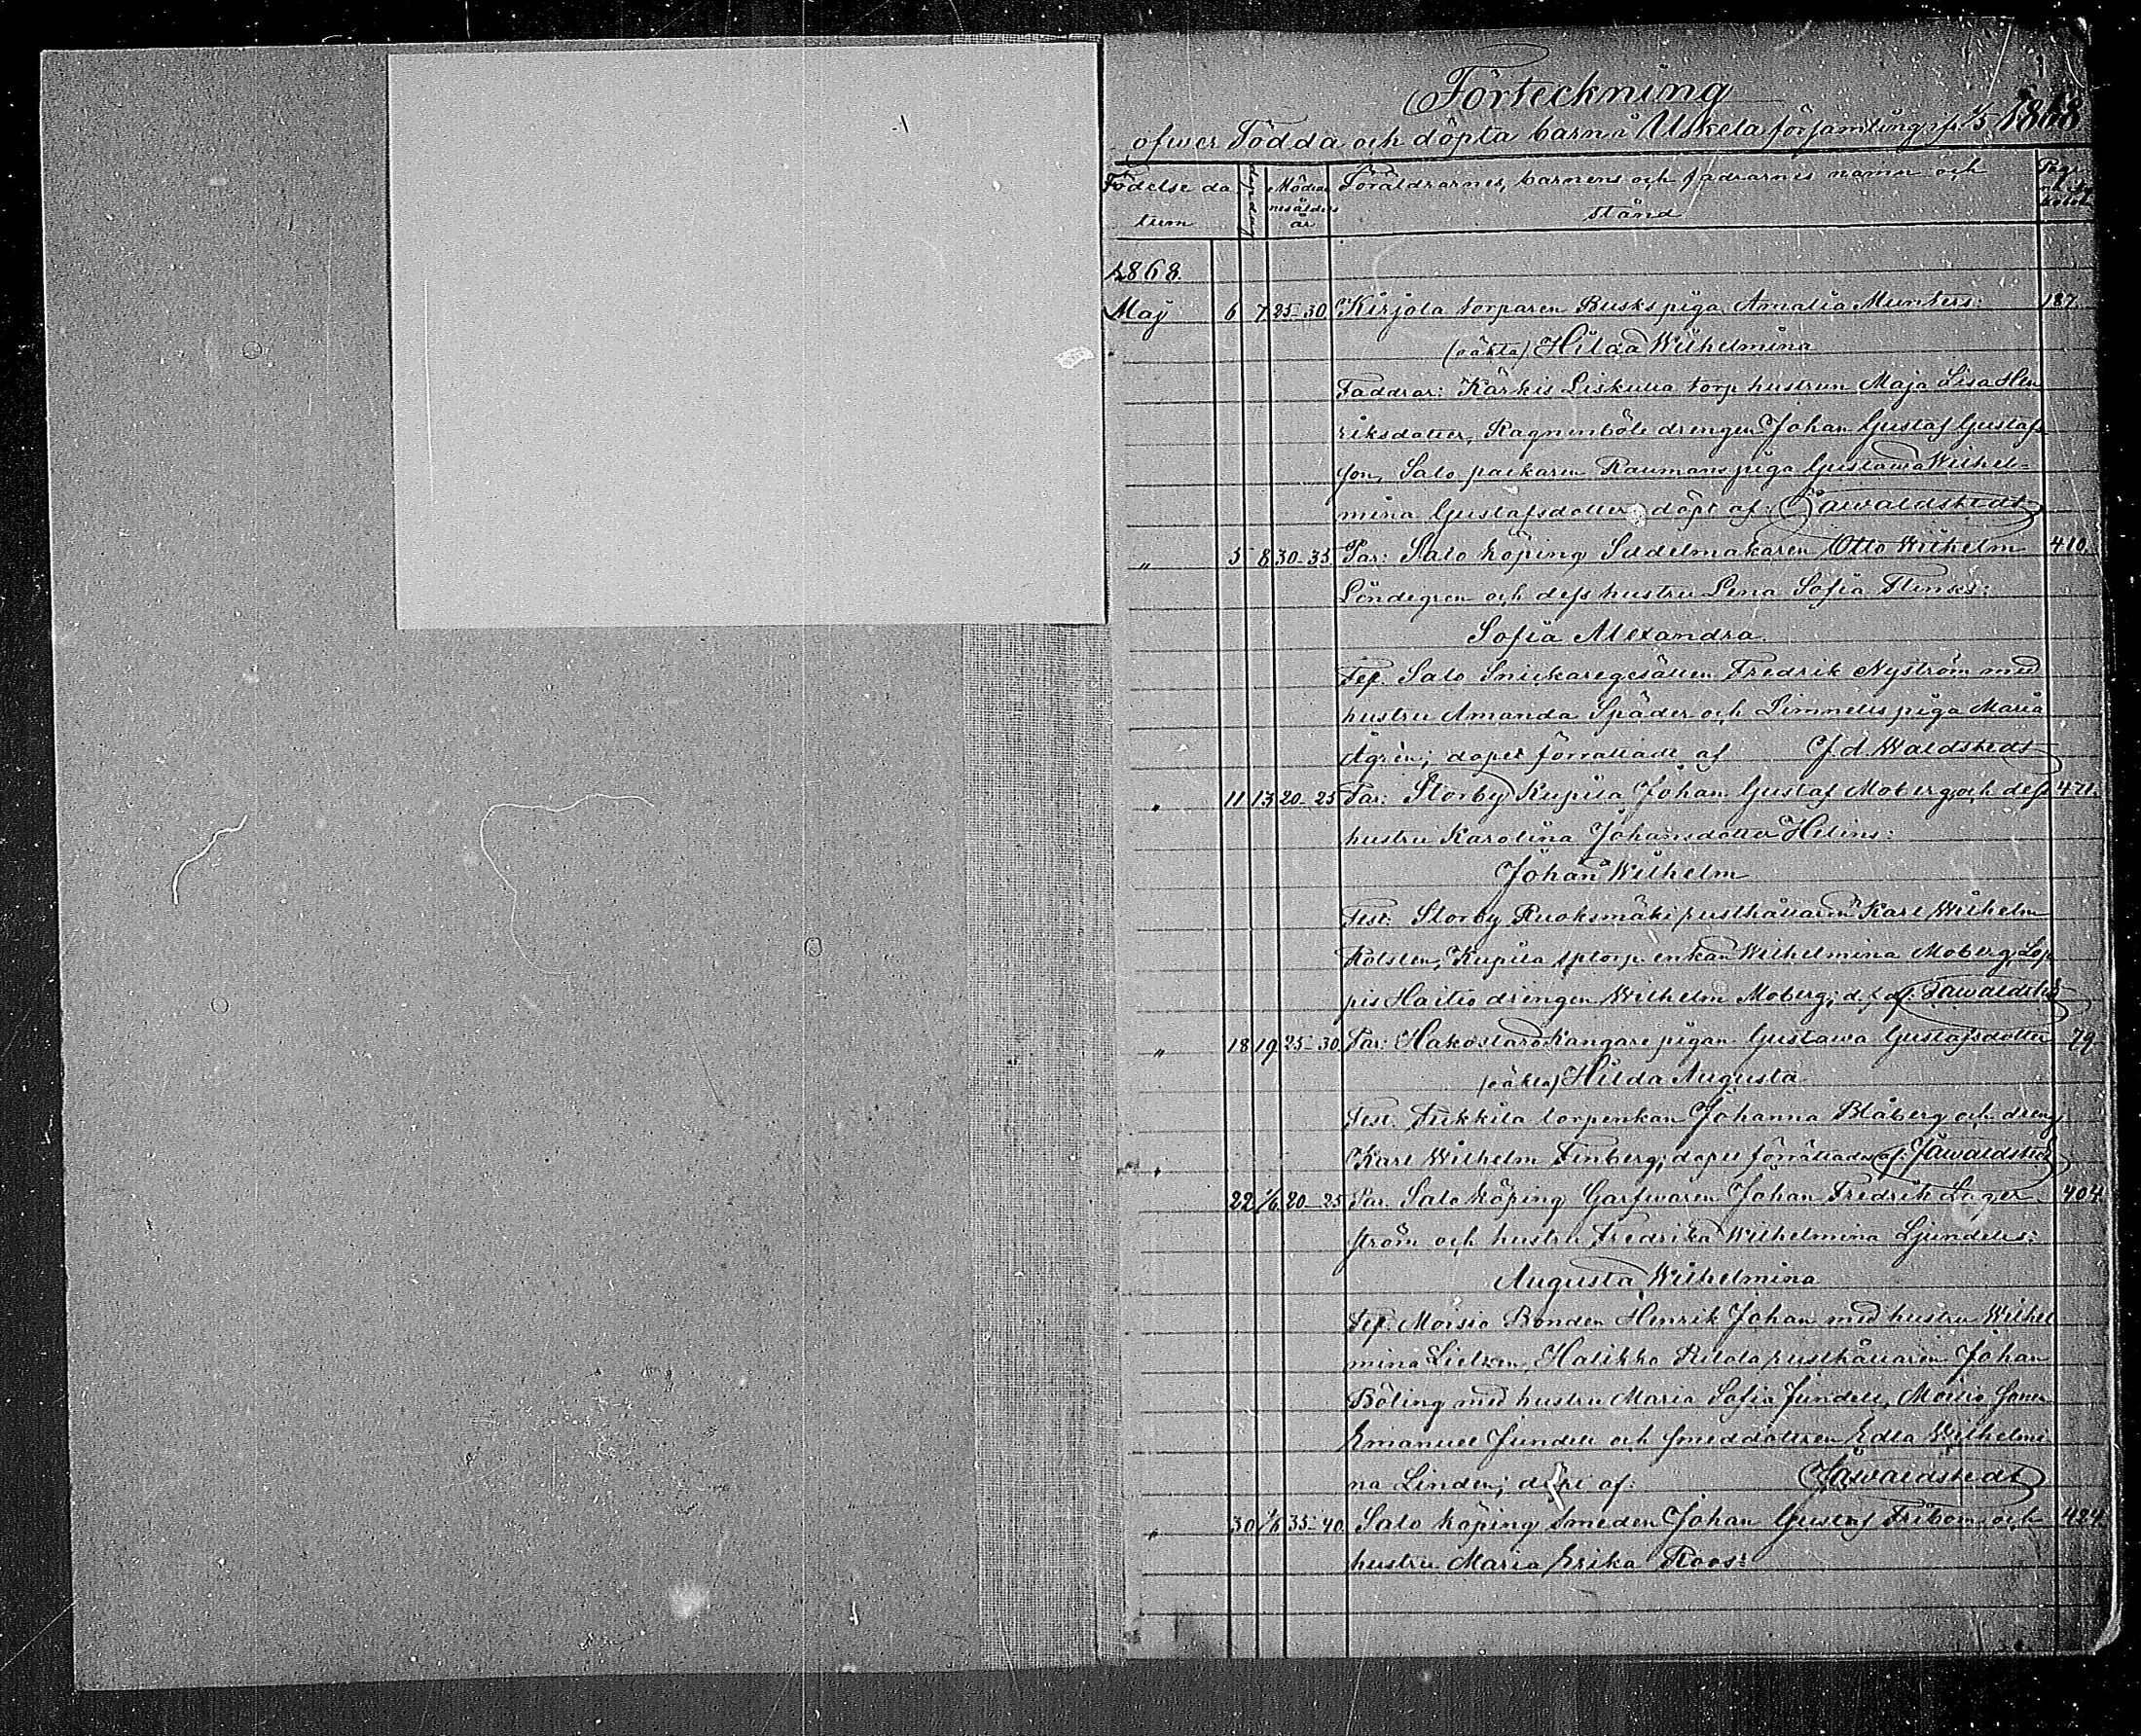 Förteckning
öfwer Födda och döpta barn i Uskela församling ifr. 1/5 1868
Födelse da Mödrar Föräldrarnes, barnens och fadrarnes namn och Pag.
tum nes ålders stånd
år
1868.
Maj 6 7 25-30 Kirjola torparen Busks piga Amalia Munters: 187.
(oäkta) Hilda Wilhelmina
Faddrar: Kärkis Liskulla torp hustrun Maja Lisa Hen
riksdotter, Ragnunböle drengen Johan Gustaf Gustafs
son, Salo packaren Raumans piga Gustawa Wilhel=
mina Gustafsdotter döpt af: Wallstedt
" 5 8 30-35 Par: Salo köping Sadelmakaren Otto Wilhelm 410.
Löndegren och dess hustru Lena Sofia
Sofia Alexandra.
Tes. Salo Snickaregesällen Fredrik Nyström med
hustru Amanda Späder och Limnells piga Maria
Ågren; dopet förrättadt af Waldstedt
" 11 13 20-25 Par: Storby Kupila Johan Gustaf Moberg och dess 471.
hustru Karolina Johansdotter Helins:
Johan Wilhelm
Test: Storby Ruoksmäki rusthållaren Karl Wilhelm
Rolsten, Kupila enkan Wilhelmina Moberg, Lop
pis Haitio drengen Wilhelm Moberg; d. f. af: Waldstedt
" 18 19 25-30 Par: Hakostaro Kangare pigan Gustawa Gustafsdotter 79.
(oäkta) Hilda Augusta
Test. Pikkila torpenkan Johanna Blåberg och dreng
Karl Wilhelm Finberg; dopet förrättades af: Waldstedt
22 1/6 20-25 Par. Salo köping Garfwaren Johan Fredrik Lager 404.
ström och hustru Fredrika Wilhelmina
Augusta Wilhelmina
Tes. Moisio Bonden Henrik Johan med hustru Wilhel
mina Halikko rusthållaren Johan
Böling med hustru Maria Sofia Jundell, Moisio
Emanuel Jundell och smeddottren Edla Wilhelmi
na Linden; döpt af: Waldstedt
" 30 1/6 35-40 Salo köping Smeden Johan Gustaf Fribom och 424.
hustru Maria Erika Roos: